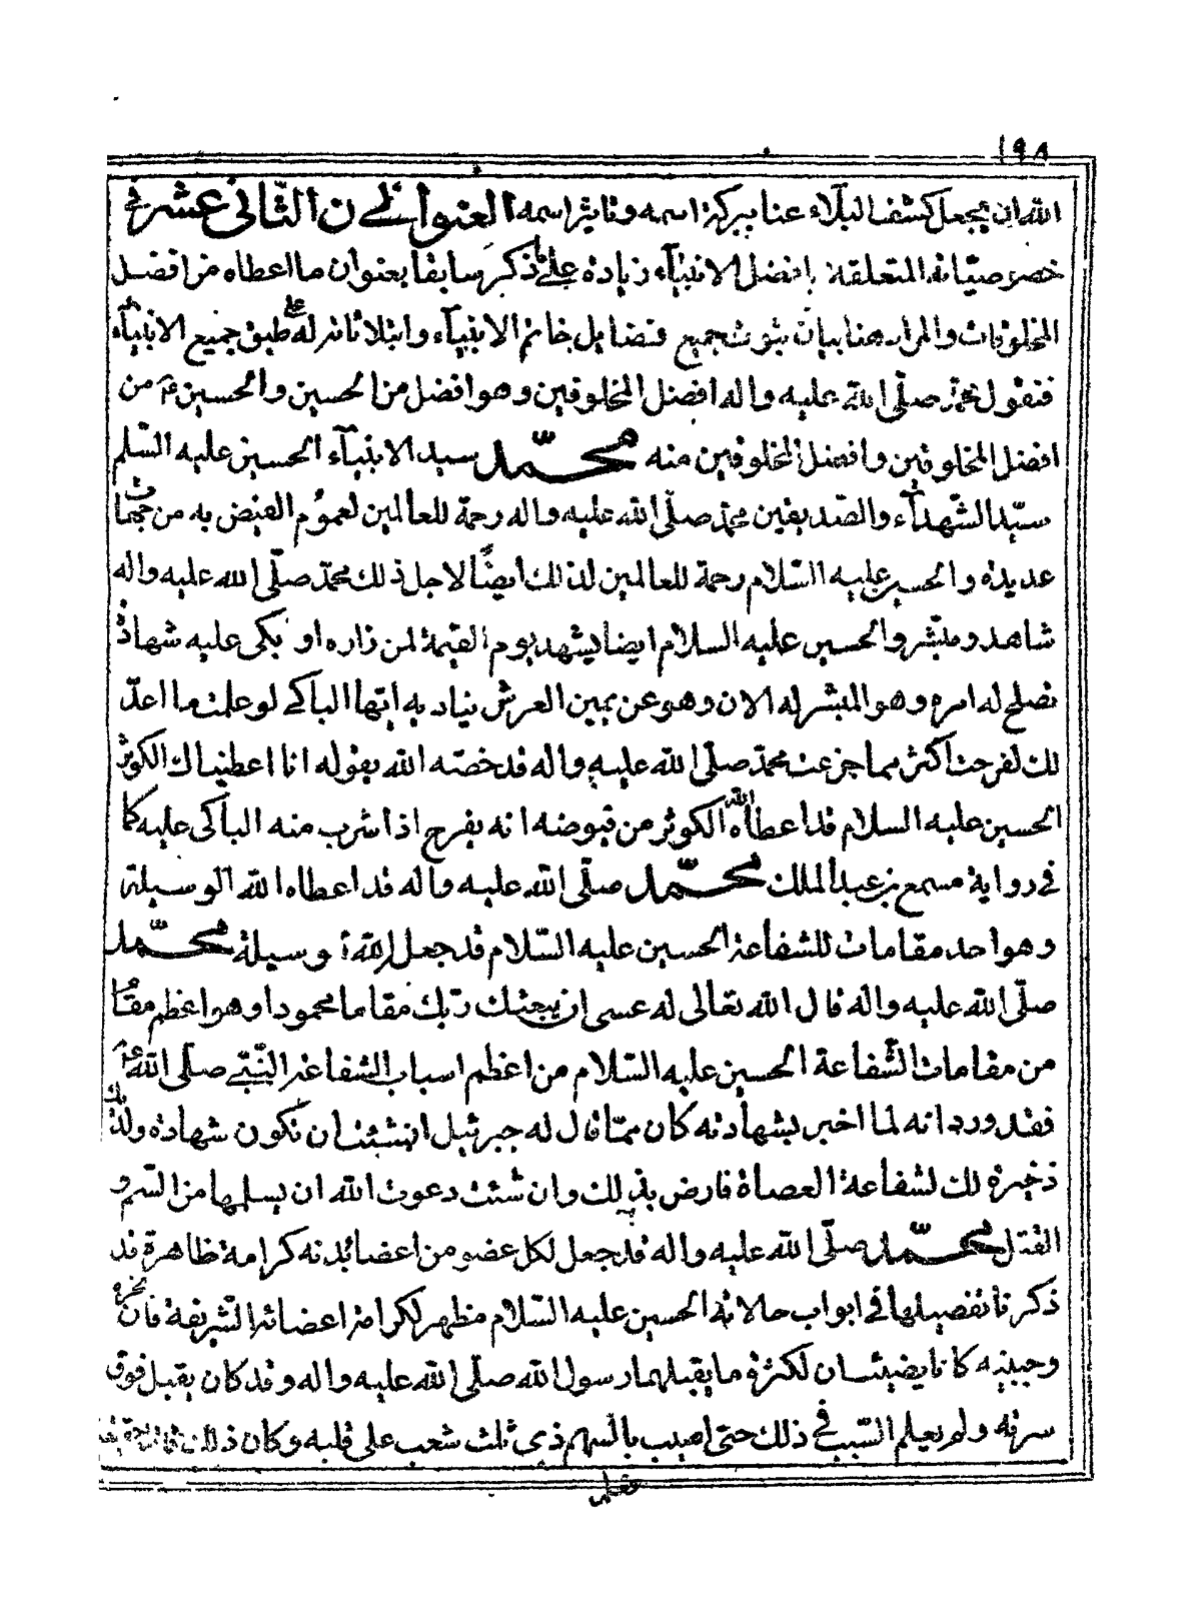 ١٩٨
الله ان يجعل كشف البلاء عنا ببركة اسمه وتاثير اسمه العنوان الثاني عشر في
خصوصياته المتعلقة بافضل الانبياء زيادة على ما ذكر سابقا بعنوان ما اعطاه من افضل
المخلوقات والمراد هنا بيان ثبوت جميع فضايل خاتم الانبياء وابتلاءاته له ع على طبق جميع الانبياء
فنقول محمد صلّى الله عليه واله افضل المخلوقين وهو افضل من الحسين والحسين ع من
افضل المخلوقين وافضل المخلوقين منه محمّد سيد الانبياء الحسين عليه السّلم
سيّد الشّهداء والصّديقين محمد صلّى الله عليه واله رحمة للعالمين لعموم الفيض به من جهات
عديدة والحسين عليه السّلام رحمة للعالمين لذلك ايضًا لاجل ذلك محمّد صلّى الله عليه واله
شاهد ومبشّر والحسين عليه السلام ايضا يشهد يوم القيمة لمن زاره او بكى عليه شهادة
تصلح له امره وهو المبشر له الان وهو عن يمين العرش يناديه ايّها الباكي لو علمت ما اعدّ
لك لفرحت اكثر مما جزعت محمّد صلّى الله عليه واله قد خصّه الله بقوله انا اعطيناك الكوثر
الحسين عليه السلام قد اعطاه الله الكوثر من فيوضه انه يفرح اذا شرب منه الباكى عليه كما
في رواية مسمع بن عبد الملك محمّد صلّى الله عليه واله قد اعطاه الله الوسيلة
وهو احد مقامات للشفاعة الحسين عليه السّلام قد جعل الله وسيلة محمّد
صلّى الله عليه واله قال الله تعالى له عسى ان يبعثك ربّك مقاما محمودا وهو اعظم مقام
من مقامات الشّفاعة الحسين عليه السّلام من اعظم اسباب الشفاعة النّبيّ صلّى الله ع
فقد ورد انه لما اخبر بشهادته كان ممّا قال له جبرئيل ان شئت ان تكون شهادة ولدك
ذخيرة لك لشفاعة العصاة فارض بذلك وان شئت دعوت الله ان يسلمها من السّم و
القتل محمّد صلّى الله عليه واله قد جعل لكل عضو من اعضاء بدنه كرامة ظاهرة قد
ذكرنا تفصيلها في ابواب حالاته الحسين عليه السّلام مظهر لكرامة اعضائه الشّريفة فان نحره
وجبينه كانا يضيئان لكثرة ما يقبلهما رسول الله صلّى الله عليه واله وقد كان يقبل فوق
سرته ولم يعلم السّبب في ذلك حتى اصيب بالسّهم ذي ثلث شعب على قلبه وكان ذلك